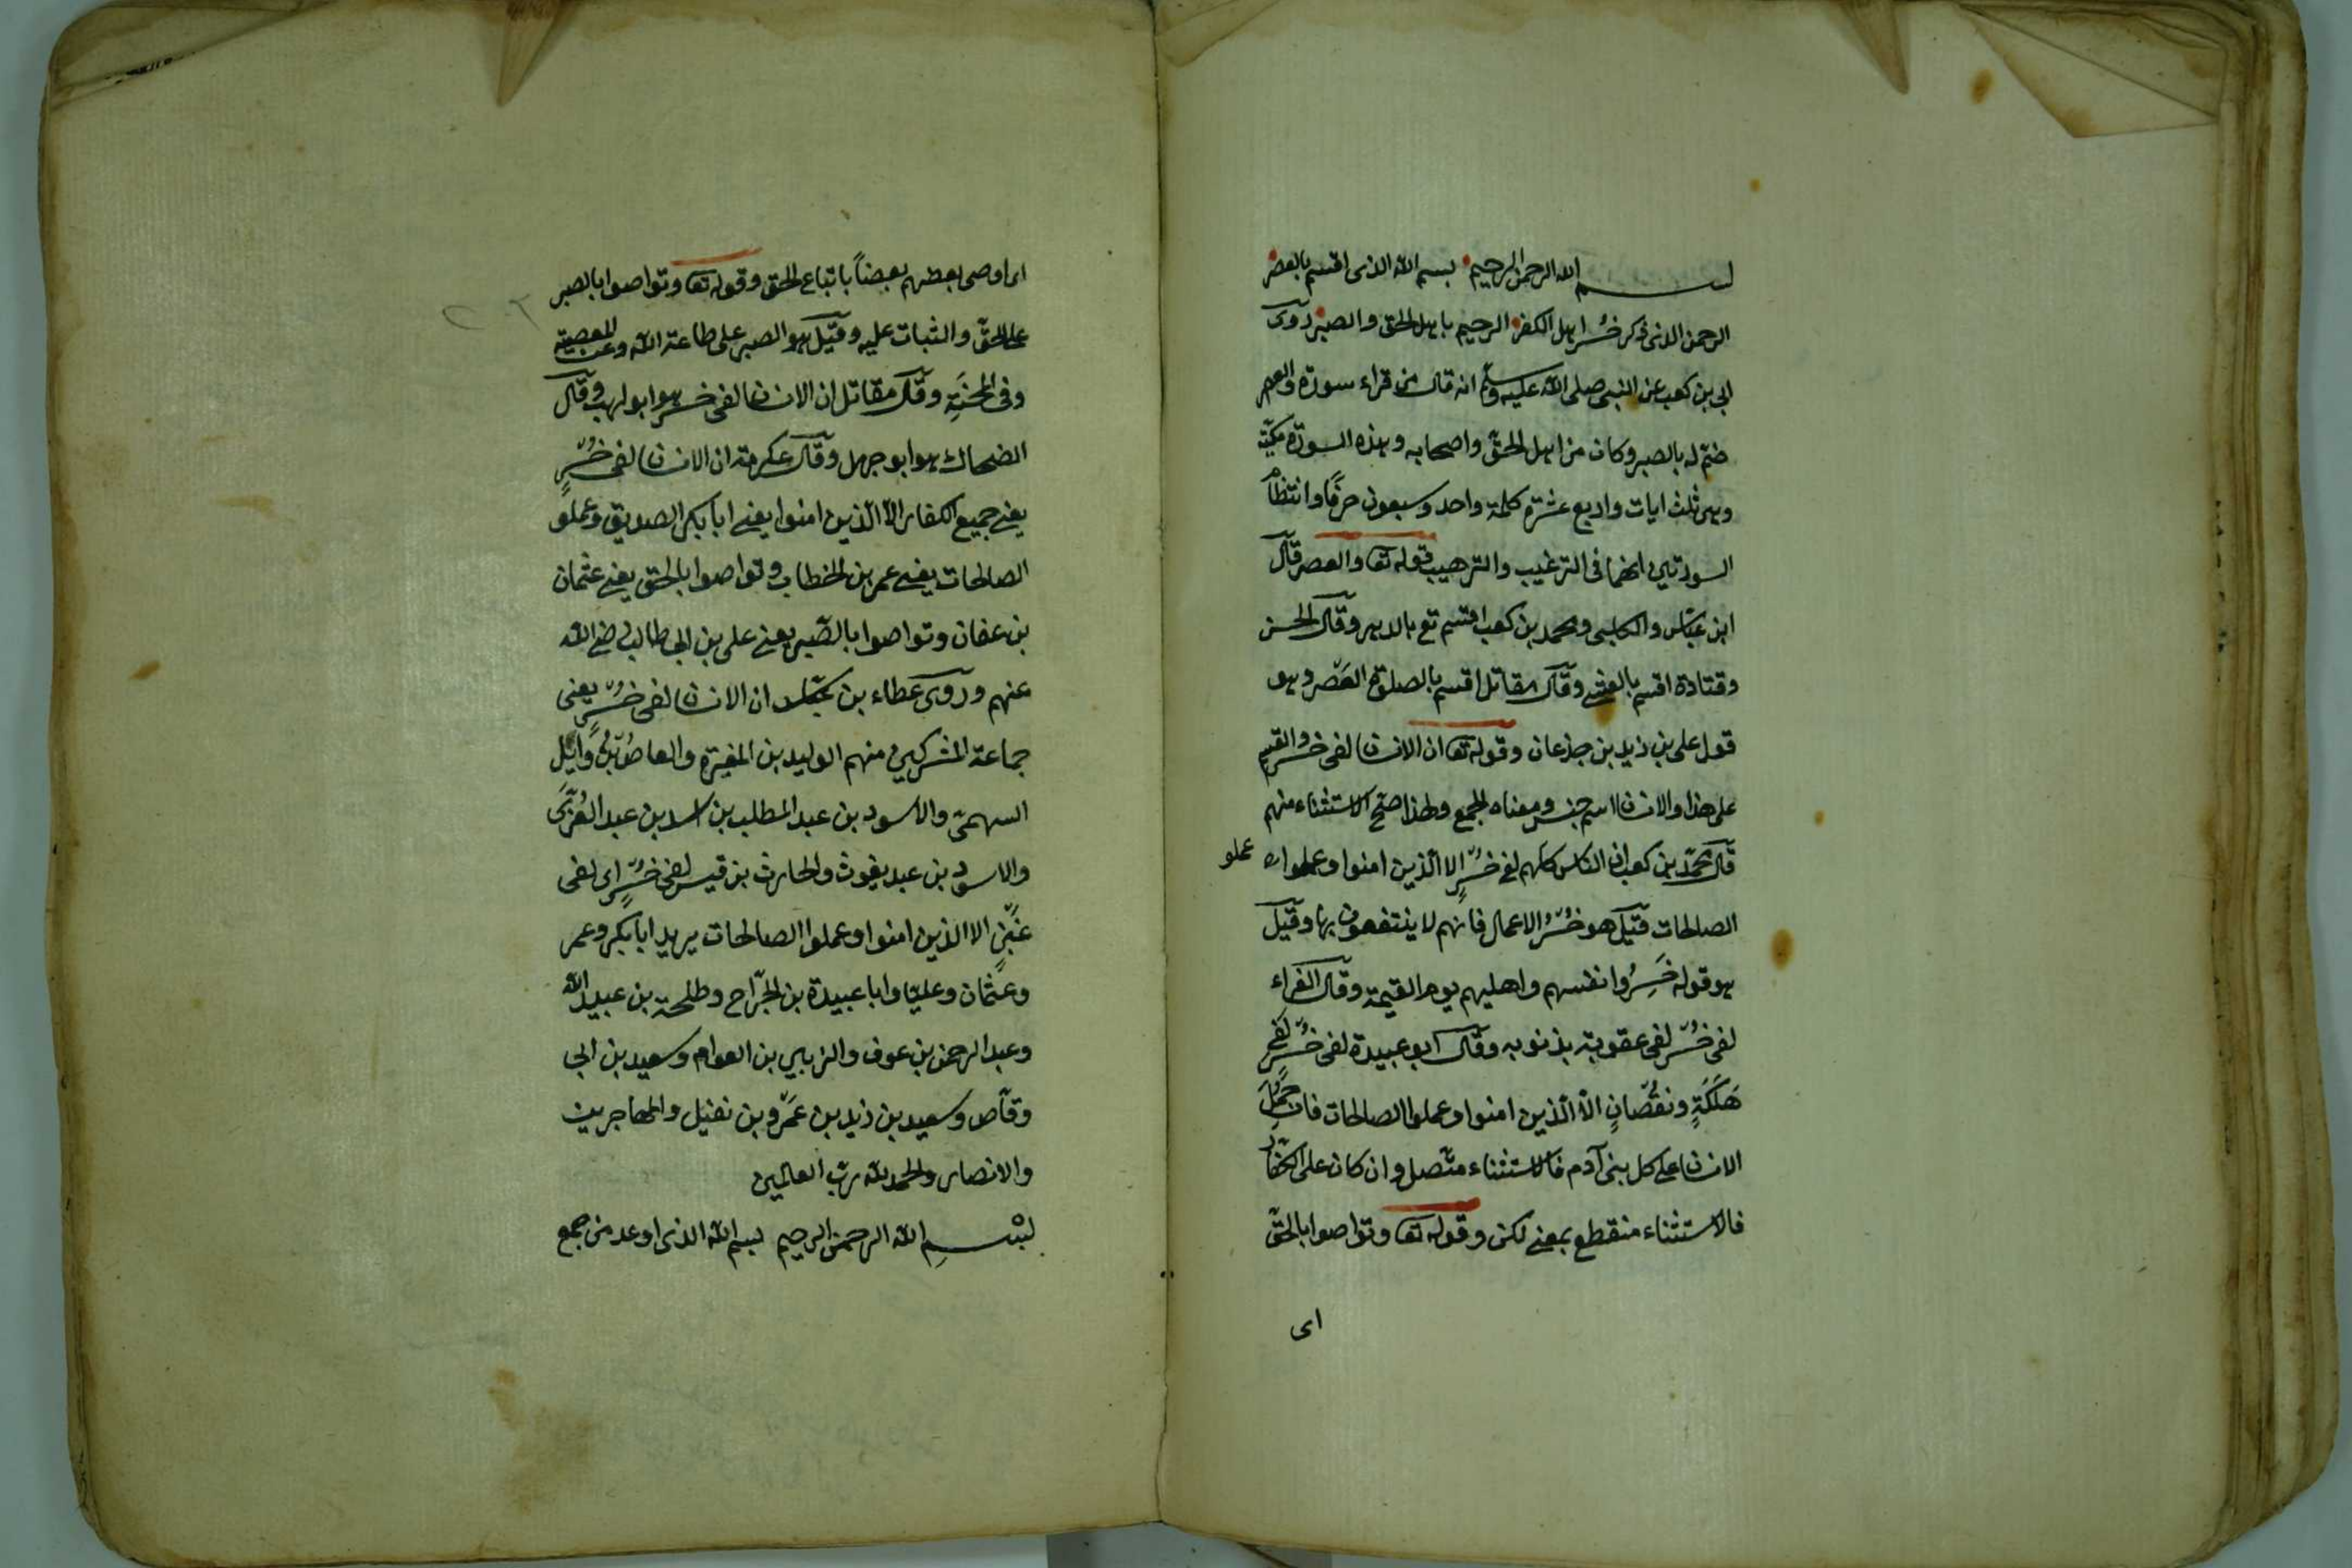 بسم الله الرحمن الرحيم بسم الله الذى اقسم بالعصر
الرحمن الذى ذكر خسر اهل الكفر الرحيم باهل الحق والصبر روى
ابى بن كعب عن النبى صلى الله عليه وسلم انه قال من قراء سورة والعصر
ختم له بالصبر وكان من اهل الحق واصحابه وهذه السورة مكية
وهى ثلث ايات واربع عشرة كلمة واحد وسبعون حرفًا وانتظام
السورتين انهما فى الترغيب والترهيب قوله تعا والعصر قال
ابن عباس والكلبى ومحمد بن كعب اقسم تع بالدهر وقال الحسن
وقتادة اقسم بالعشى وقال مقاتل اقسم بالصلوة العصر وهو
قول على بن زيد بن جذعان وقوله تعا ان الانسان لفى خسر والقسم
على هذا والانسان اسم جنس ومعناه الجمع ولهذا صح الاستثناء منهم
قال محمد بن كعب ان الناس كلهم لفى خسرٍ الا الذين امنوا وعملوا
عملو
الصالحات قيل هو خُسْرُ الاعمال فانهم لا ينتفعون بها وقيل
هو قوله خَسِرُوا انفسهم واهليهم يوم القيمة وقال الفراء
لفى خُسْر لفى عقوبة بذنوبه وقال ابو عبيدة لفى خُسْر لفى
هَلَكَةٍ ونقُصَانٍ الا الذين امنوا وعملوا الصالحات فان حُمِلَ
الانسان على كل بنى آدم فالاستثناء متّصل وان كان على الكفار
فالاستثناء منقطع بمعنى لكن وقوله تعا وتواصوا بالحق
اى
اى اوصى بعضهم بعضاً باتباع الحق وقوله تعا وتواصوا بالصبر
على الحق والثبات عليه وقيل هو الصبر على طاعة الله وعن المعصية
وفى المحنَةِ وقال مقاتل ان الانسان لفى خسر هو ابو لهب وقال
الضحاك هو ابو جهل وقال عكرمة ان الانسان لفى خُسْرٍ
يعنى جميع الكفار الا الذين امنوا يعنى ابا بكر الصديق وعملو
الصالحات يعنى عمر بن الخطاب وتواصوا بالحق يعنى عثمان
بن عفان وتواصوا بالصبر يعنى على بن ابى طالب رضى الله
عنهم وروى عطاء بن عباس ان الانسان لفى خُسْرٍ يعنى
جماعة المشركين منهم الوليد بن المغيرة والعاص بن وايل
السهمى والاسود بن عبد المطلب بن اسد بن عبد العُزّى
والاسود بن عبد يغوث والحارث بن قيس لفى خُسْرٍ اى لفى
غبنٍ الا الذين امنوا وعملوا الصالحات يريد ابا بكر وعمر
وعثمان وعليا وابا عبيدة بن الجراح وطلحة بن عبيد الله
وعبد الرحمن بن عوف والزبير بن العوام وسعيد بن ابى
وقاص وسعيد بن زيد بن عَمْرو بن نفيل والمهاجرين
والانصار والحمد لله رب العالمين
بسم الله الرحمن الرحيم بسم الله الذى اوعد من جمع